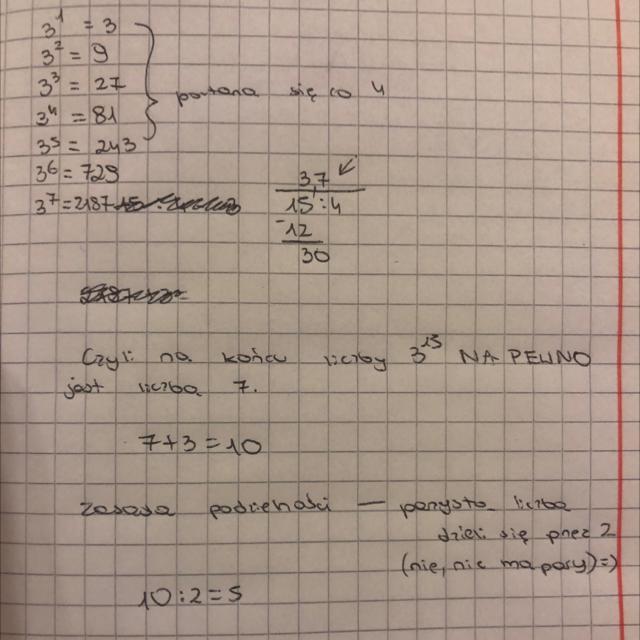 3¹ = 3
3² = 9
3³ = 27
3⁴ = 81
powtarza się co 4
3⁵ = 243
3⁶ = 729
3⁷ = 2187
3,7
15 : 4
-12
30
Czyli na końcu liczby 3¹⁵ NA PEWNO
jest liczba 7.
7+3=10
zasada podzielności — parzysta liczba
dzieli się przez 2
(nie, nie ma pary) =)
10:2=5